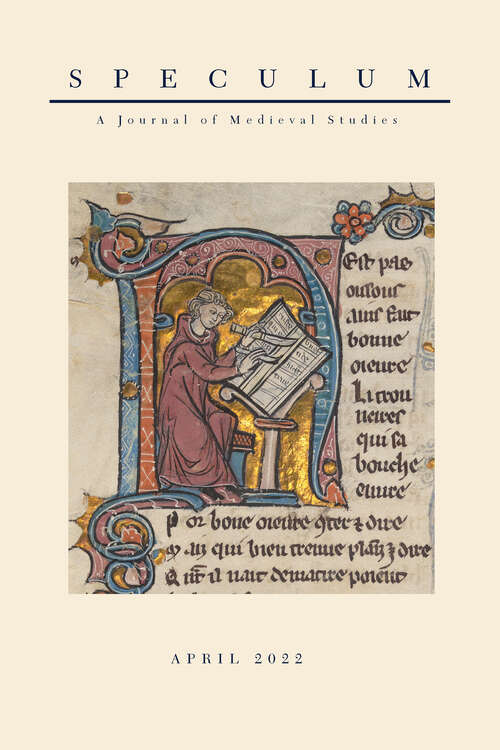 SPECULUM
A Journal of Medieval Studies
N Est pas
oissous
ains fait
bonne
oieure
Li trou
ueres
qui sa
bouche
euure
P or bone oieure 9ter ⁊ dire
M ais qui bien treuue dire
Q nt il nait de matire poient
APRIL 2022